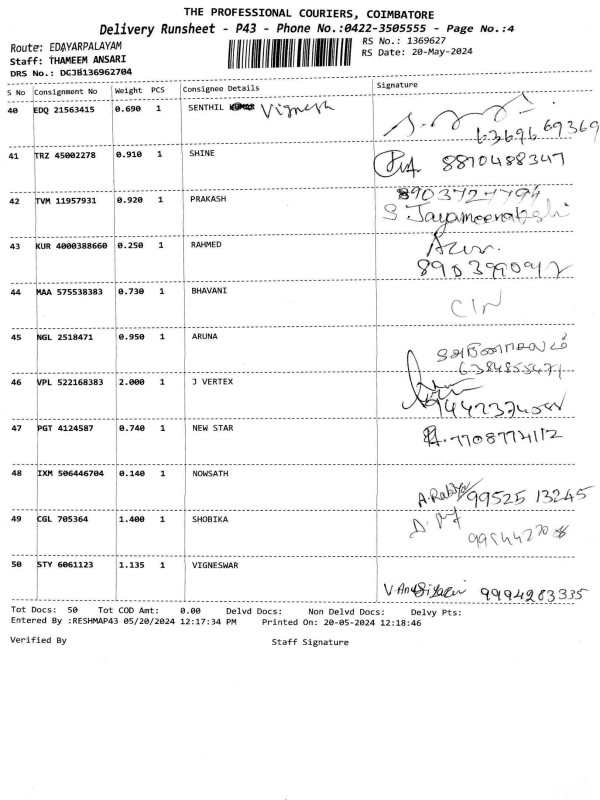 THE PROFESSIONAL COURIERS, COIMBATORE
Delivery Runsheet - P43 - Phone No.:0422-3505555 - Page No.:4
Route: EDAYARPALAYAM
RS No.: 1369627
Staff: THAMEEM ANSARI
RS Date: 20-May-2024
DRS No.: DCJB136962704
S No Consignment No Weight PCS Consignee Details Signature
40 EDQ 21563415 0.690 1 SENTHIL Vignesh
63696 69369
41 TRZ 45002278 0.910 1 SHINE 8870488347
42 TVM 11957931 0.920 1 PRAKASH
S Jayameenakshi
43 KUR 4000388660 0.250 1 RAHMED
8903990912
44 MAA 575538383 0.730 1 BHAVANI
45 NGL 2518471 0.950 1 ARUNA
6384855471
46 VPL 522168383 2.000 1 J VERTEX
47 PGT 4124587 0.740 1 NEW STAR
48 IXM 506446704 0.140 1 NOWSATH
99525 13245
49 CGL 705364 1.400 1 SHOBIKA
50 STY 6061123 1.135 1 VIGNESWAR
9994283335
Tot Docs: 50 Tot COD Amt: 0.00 Delvd Docs: Non Delvd Docs: Delvy Pts:
Entered By :RESHMAP43 05/20/2024 12:17:34 PM Printed On: 20-05-2024 12:18:46
Verified By Staff Signature